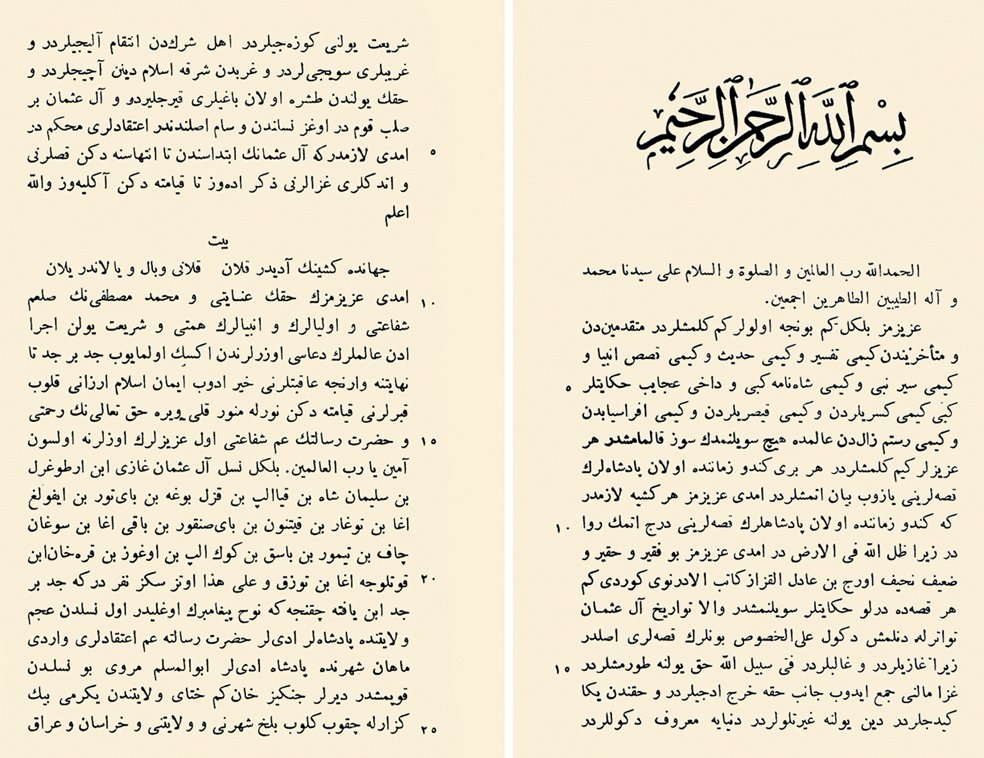 بِسْمِ ٱللَّهِ ٱلرَّحْمٰنِ ٱلرَّحِيمِ
الحمدالله رب العالمين و الصلوة و السلام على سيدنا محمد
و آله الطيبين الطاهرين اجمعين.
عزيزمز بلكل كم بونجه اولولر كم كلمشلردر متقدمين‌دن
و متأخريندن كيمى تفسير و كيمى حديث و كيمى قصص انبيا و
كيمى سير نبى و كيمى شاه‌نامه كبى و داخى عجايب حكايتلر
٥
كبى كيمى كسريلردن و كيمى قيصريلردن و كيمى افراسيابدن
و كيمى رستم زال‌دن عالمده هيچ سويلنمدك سوز قالمامشدر هر
عزيزلر كيم كلمشلردر هر برى كندو زماننده اولان پادشاه‌لرك
قصه‌لرينى يازوب بيان اتمشلردر امدى عزيزمز هر كشيه لازمدر
كه كندو زماننده اولان پادشاهلرك قصه‌لرينى درج اتمك روا
١٠
در زيرا ظل الله فى الارض در امدى عزيزمز بو فقير و حقير و
ضعيف نحيف اورج بن عادل القزاز كاتب الادرنوى كوردى كم
هر قصه‌ده درلو حكايتلر سويلنمشدر والا تواريخ آل عثمان
تواترله دنلمش دكول على‌الخصوص بونلرك قصه‌لرى اصلدر
زيرا غازيلردر و غالبلردر فى سبيل الله حق يولنه طورمشلردر
١٥
غزا مالنى جمع ايدوب جانب حقه خرج ادجيلردر و حقندن يكا
كيدجلردر دين يولنه غيرتلولردر دنيايه معروف دكوللردر
شريعت يولنى كوزه‌جيلردر اهل شرك‌دن انتقام آليجيلردر و
غريبلرى سويجى‌لردر و غربدن شرقه اسلام دينن آچيجلردر و
حقك يولندن طشره اولان باغيلرى قيرجليردو و آل عثمان بر
صلب قوم در اوغز نساندن و سام اصلندندر اعتقادلرى محكم در
امدى لازمدركه آل عثمانك ابتداسندن تا انتهاسنه دكن قصلرنى
٥
و اتدكلرى غزالرنى ذكر اده‌وز تا قيامته دكن آكليه‌وز والله
اعلم
بيت
جهانده كشينك آديدر قلان قلانى وبال و يا لاندر يلان
امدى عزيزمزك حقك عنايتى و محمد مصطفى‌نك صلعم
١٠
شفاعتى و اوليالرك و انبيالرك همتى و شريعت يولن اجرا
ادن عالملرك دعاسى اوزرلرندن اكسك اولمايوب جد بر جد تا
نهايتنه وارنجه عاقبتلرنى خير ادوب ايمان اسلام ارزانى قلوب
قبرلرنى قيامته دكن نورله منور قلى ويره حق تعالى‌نك رحمتى
و حضرت رسالتك عم شفاعتى اول عزيزلرك اوزلرنه اولسون
١٥
آمين يا رب العالمين. بلكل نسل آل عثمان غازى ابن ارطوغرل
بن سليمان شاه بن قياالپ بن قزل بوغه بن باى‌تور بن ايفولغ
اغا بن توغار بن قيتنون بن باى‌صنقور بن باقى اغا بن سوغان
چاف بن تيمور بن باسق بن كوك الپ بن اوغوز بن قره‌خان‌ابن
قوتلوجه اغا بن توزق و على هذا اوتز سكز نفر دركه جد بر
٢٠
جد ابن يافته چقنجه‌كه نوح پيغامبرك اوغليدر اول نسلدن عجم
ولايتنده پادشاه‌لر ادى‌لر حضرت رسالته عم اعتقادلرى واردى
ماهان شهرنده پادشاه ادى‌لر ابوالمسلم مروى بو نسلدن
قوپمشدر ديرلر جنكيز خان‌كم ختاى ولايتندن يكرمى بيك
كزارله چقوب كلوب بلخ شهرنى و ولايتنى و خراسان و عراق
٢٥